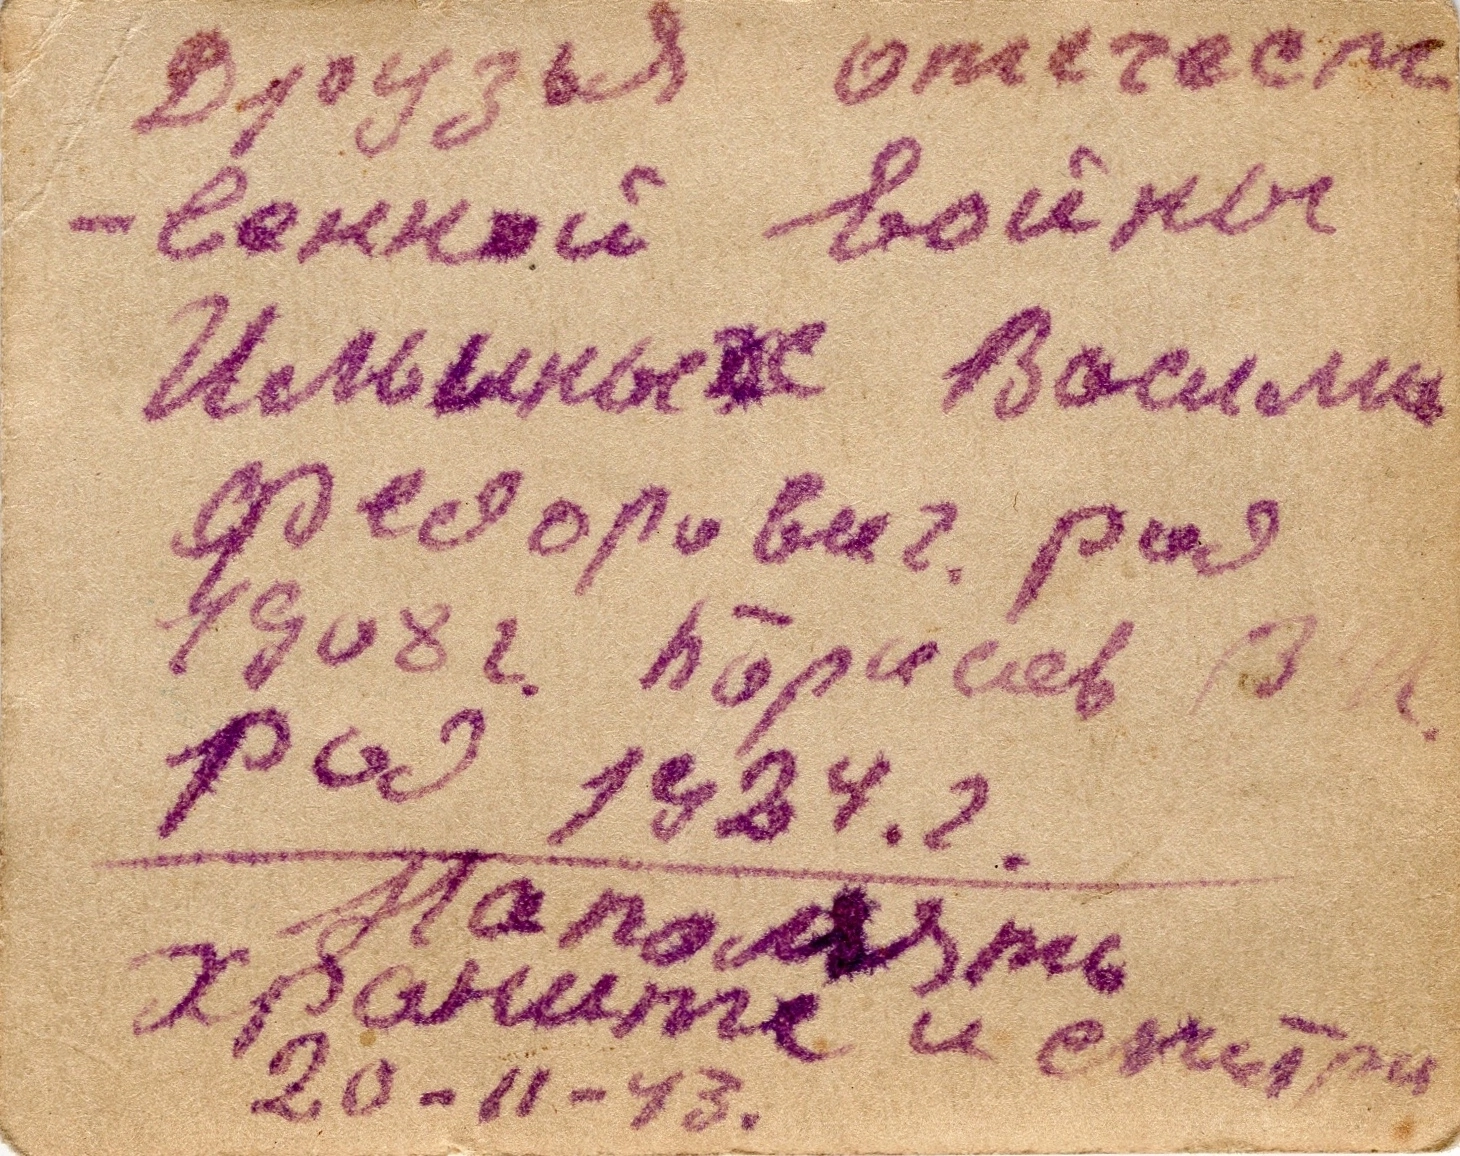 Друзья отечест
-венной войны
Ильиных Васили
Федорович. род
1908 г. Борисов В И.
род 1924. г.
Напомять
Храните и смотри
20-11-43.